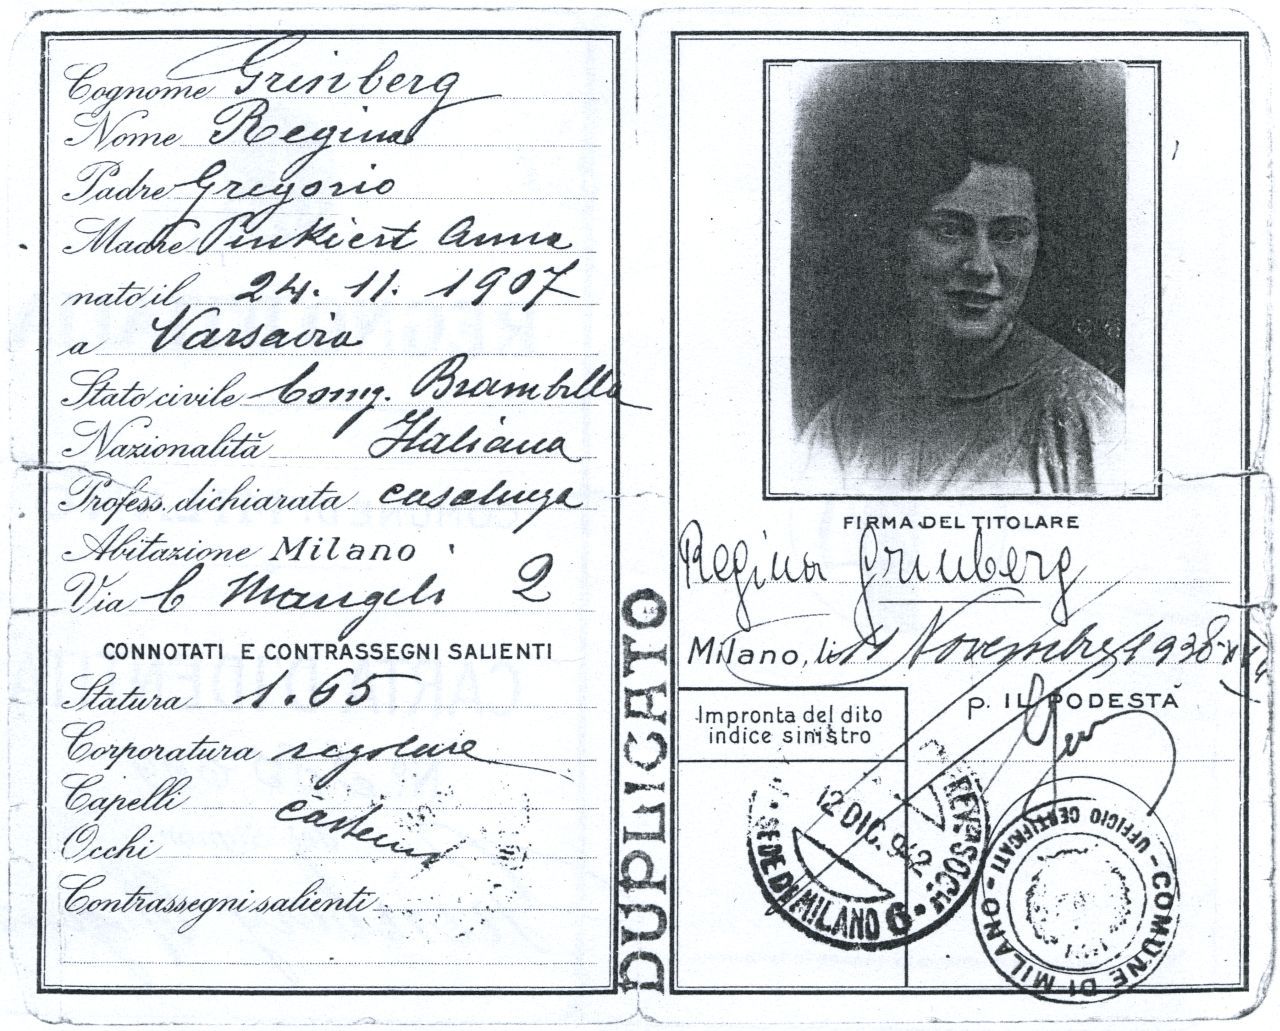 Cognome Grinberg
Nome Regina
Padre Gregorio
Madre Pinkiert Anna
nato il 24. 11. 1907
a Varsavia
Stato civile Comg. Brambilla
Nazionalità Italiana
Profess. dichiarata casalinga
Abitazione Milano
Via C Mangili 2
CONNOTATI E CONTRASSEGNI SALIENTI
Statura 1.65
Corporatura regolare
Capelli
castani
Occhi
Contrassegni salienti
DUPLICATO
FIRMA DEL TITOLARE
Regina Grinberg
Milano, li 11 Novembre 1938
p. IL PODESTÀ
Impronta del dito
indice sinistro
12 DIC. 942
SEDE DI MILANO 6
COMUNE DI MILANO - UFFICIO CERTIFICATI -